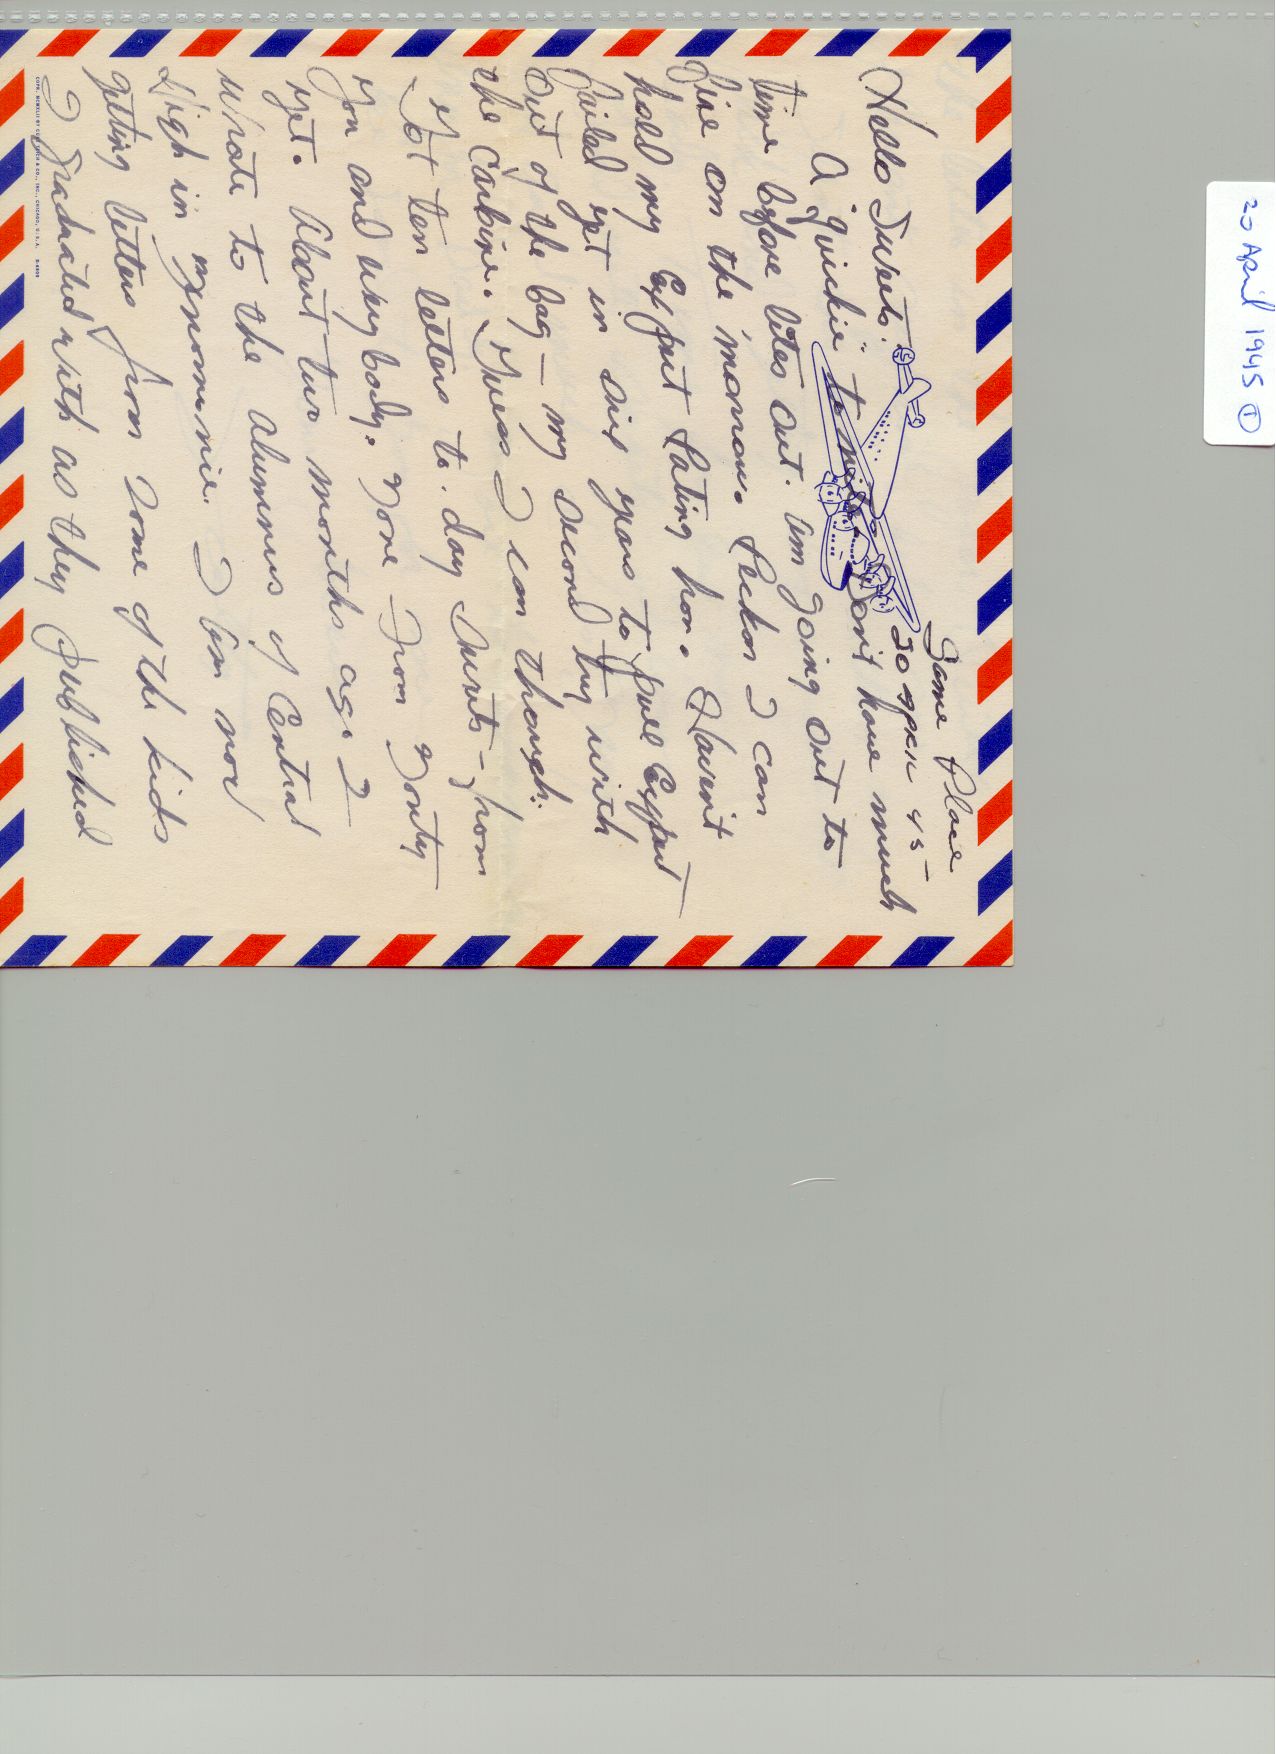 20 April 1945 ①
Same Place
20 April 45
Hello Sweets:
A "quickie" to nite. Don't have much
time before lites out. Am going out to
fire on the morrow. Reckon I can
hold my Expert Rating hon. Haven't
failed yet in six years to pull Expert
out of the bag - my second try with
the Carbine. Guess I can though.
Got ten letters to-day Sweets - from
you and everybody. None from Monty
yet. About two months ago I
wrote to the alumnus of Central
High in. I'm now
getting letters from some of the kids
I graduated with as they published
COPR. MCMXLII BY CO., INC., CHICAGO, U.S.A.